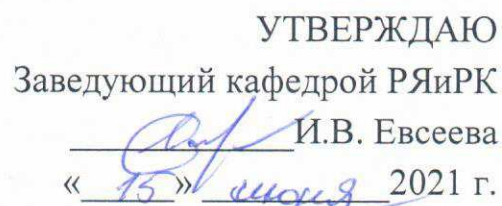 УТВЕРЖДАЮ
Заведующий кафедрой РЯиРК
И.В. Евсеева
«15» июня 2021 г.